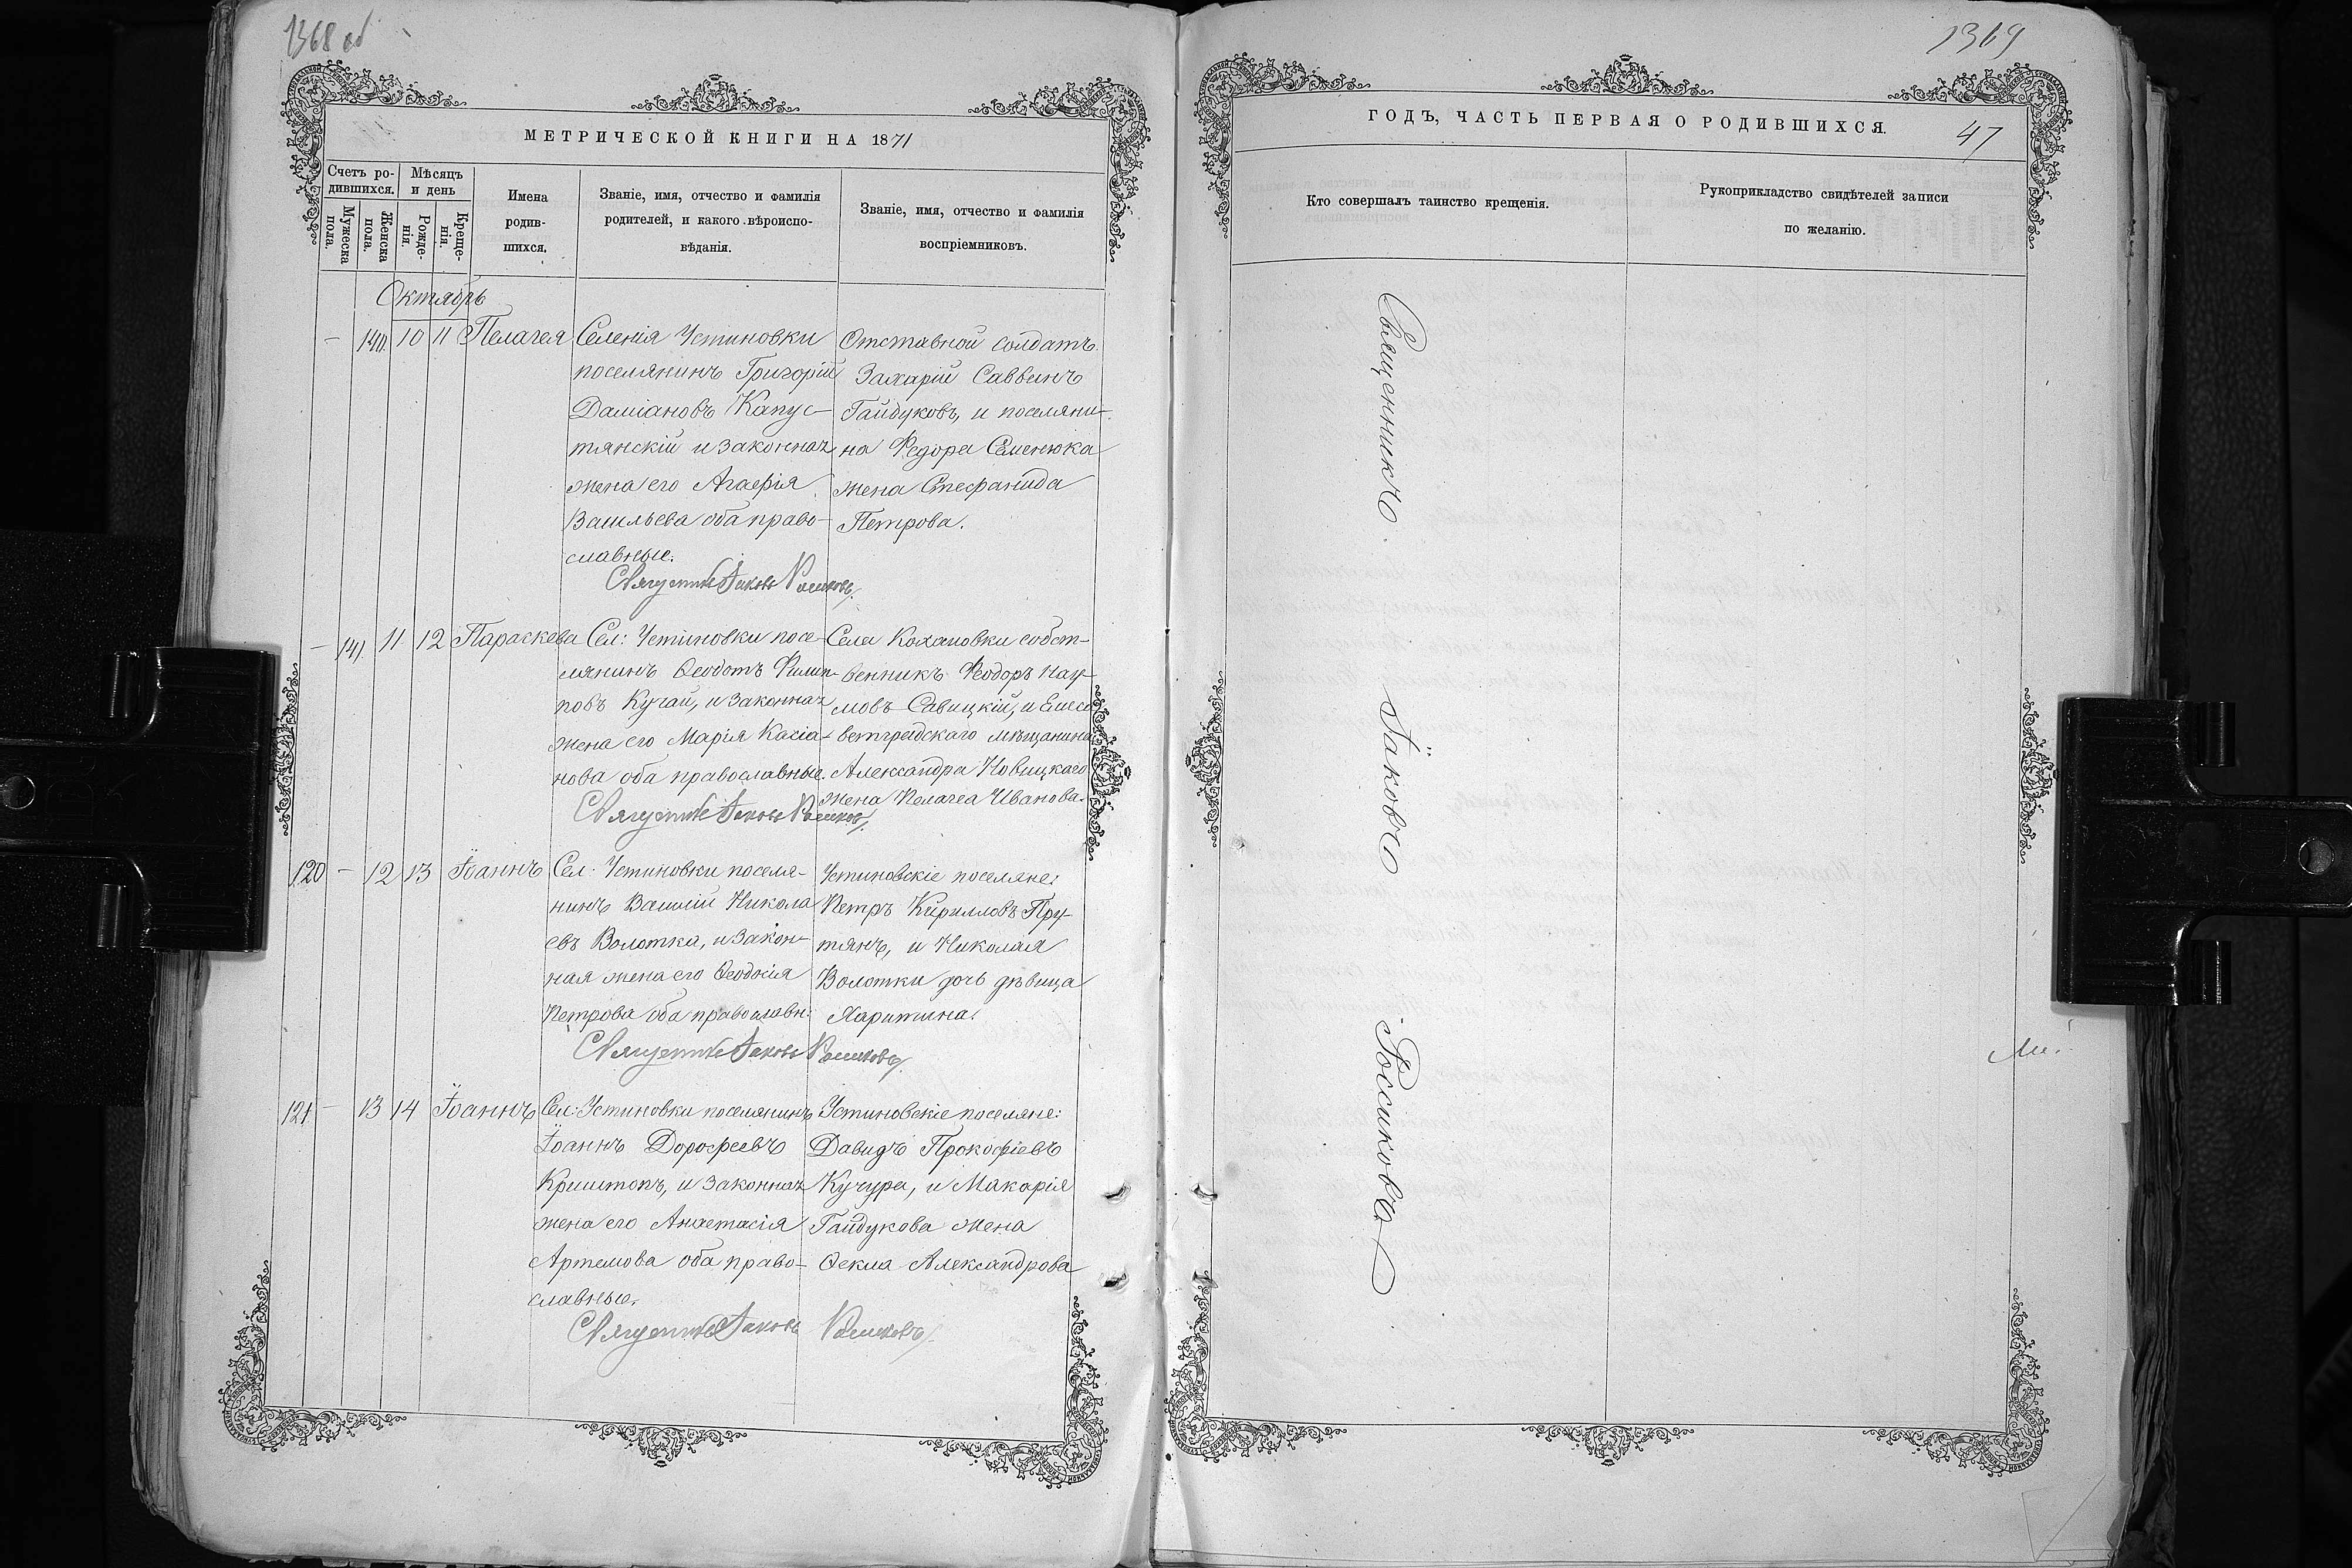 1368 об
МЕТРИЧЕСКОЙ КНИГИ НА 1871
Счетъ ро-
дившихся.
Мѣсяцъ
и день
Мужеска
пола.
Женска
пола.
Рожде-
нія.
Креще-
нія.
Имена
родив-
шихся.
Званіе, имя, отчество и фамилія
родителей, и какого вѣроиспо-
вѣданія.
Званіе, имя, отчество и фамилія
воспріемниковъ.
Октябрь
– 140 10 11 Пелагея
Селенія Устиновки
поселянинъ Григорій
Даміановъ Капус-
тянскій и законная
жена его Агафія
Васильева оба право-
славные.
Священникъ Іаковъ Росиковъ
Отставной солдатъ
Захарій Саввинъ
Гайдуковъ, и поселяни-
на Федора Семенюка
жена Стефанида
Петрова.
– 141 11 12 Параскева
Сел: Устиновки посе-
лянинъ Ѳеодотъ Филип-
повъ Кучай, и законная
жена его Марія Касіа-
нова оба православные.
Священникъ Іаковъ Росиковъ
Села Кохановки собст-
венникъ Феодоръ Нау-
мовъ Савицкій, и Елиса
ветградскаго мѣщанина
Александра Новицкаго
жена Пелагеа Иванова.
120 – 12 13 Іоаннъ
Сел: Устиновки поселя-
нинъ Василій Никола
евъ Волотка, и закон-
ная жена его Ѳеодосія
Петрова оба православн:
Священникъ Іаковъ Росиковъ
Устиновскіе поселяне:
Петръ Кирилловъ Пру-
тянъ, и Николая
Волотки дочь дѣвица
Харитина.
121 – 13 14 Іоаннъ
Сел: Устиновки поселянинъ
Іоаннъ Дорофеевъ
Криштопъ, и законная
жена его Анастасія
Артемова оба право-
славные.
Священникъ Іаковъ Росиковъ
Устиновскіе поселяне:
Давидъ Прокофіевъ
Кучура, и Макарія
Гайдукова жена
Ѳекла Александрова
1369
ГОДЪ, ЧАСТЬ ПЕРВАЯ О РОДИВШИХСЯ.
47
Кто совершалъ таинство крещенія.
Рукоприкладство свидѣтелей записи
по желанію.
Священникъ Іаковъ Росиковъ